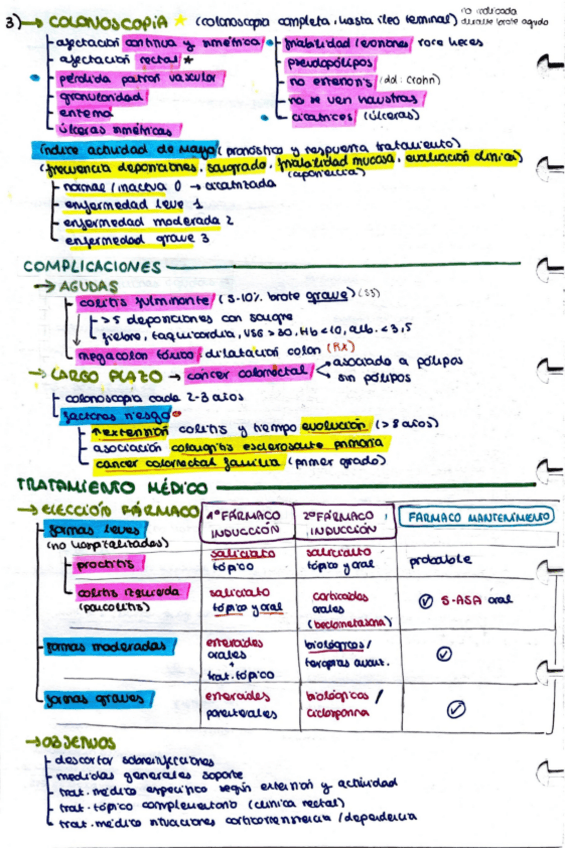 3) → COLONOSCOPIA ★ (colonoscopia completa, hasta íleo terminal) no indicada durante brote agudo
afectación continua y simétrica
afectación rectal *
pérdida patrón vascular
granularidad
eritema
úlceras simétricas
friabilidad lesiones, roce heces
pseudopólipos
no estenosis (dd: Crohn)
no se ven haustras
cicatrices (úlceras)
índice actividad de Mayo (pronóstico y respuesta tratamiento)
(frecuencia deposiciones, sangrado, friabilidad mucosa, evaluación clínica)
(apariencia)
normal / inactiva 0 → cicatrizada
enfermedad leve 1
enfermedad moderada 2
enfermedad grave 3
COMPLICACIONES
→ AGUDAS
colitis fulminante (5-10% brote grave) (SS)
> 5 deposiciones con sangre
fiebre, taquicardia, VSG > 30, Hb < 10, alb. < 3,5
megacolon tóxico: dilatación colon (Rx)
→ LARGO PLAZO → cáncer colorrectal
asociado a pólipos
sin pólipos
colonoscopia cada 2-3 años
factores riesgo
↑ extensión colitis y tiempo evolución (> 8 años)
asociación colangitis esclerosante primaria
cáncer colorrectal familia (primer grado)
TRATAMIENTO MÉDICO
→ ELECCIÓN FÁRMACO
1º FÁRMACO INDUCCIÓN
2º FÁRMACO INDUCCIÓN
FÁRMACO MANTENIMIENTO
formas leves
(no hospitalizados)
proctitis
salicilato tópico
salicilato tópico y oral
probable
colitis izquierda (pancolitis)
salicilato tópico y oral
corticoides orales (beclometasona)
✓ 5-ASA oral
formas moderadas
esteroides orales + trat. tópico
biológicos / terapias avanz.
✓
formas graves
esteroides parenterales
biológicos / ciclosporina
✓
→ OBJETIVOS
descartar sobreinfecciones
medidas generales soporte
trat. médico específico según extensión y actividad
trat. tópico complementario (clínica rectal)
trat. médico situaciones corticorresistencia / dependencia